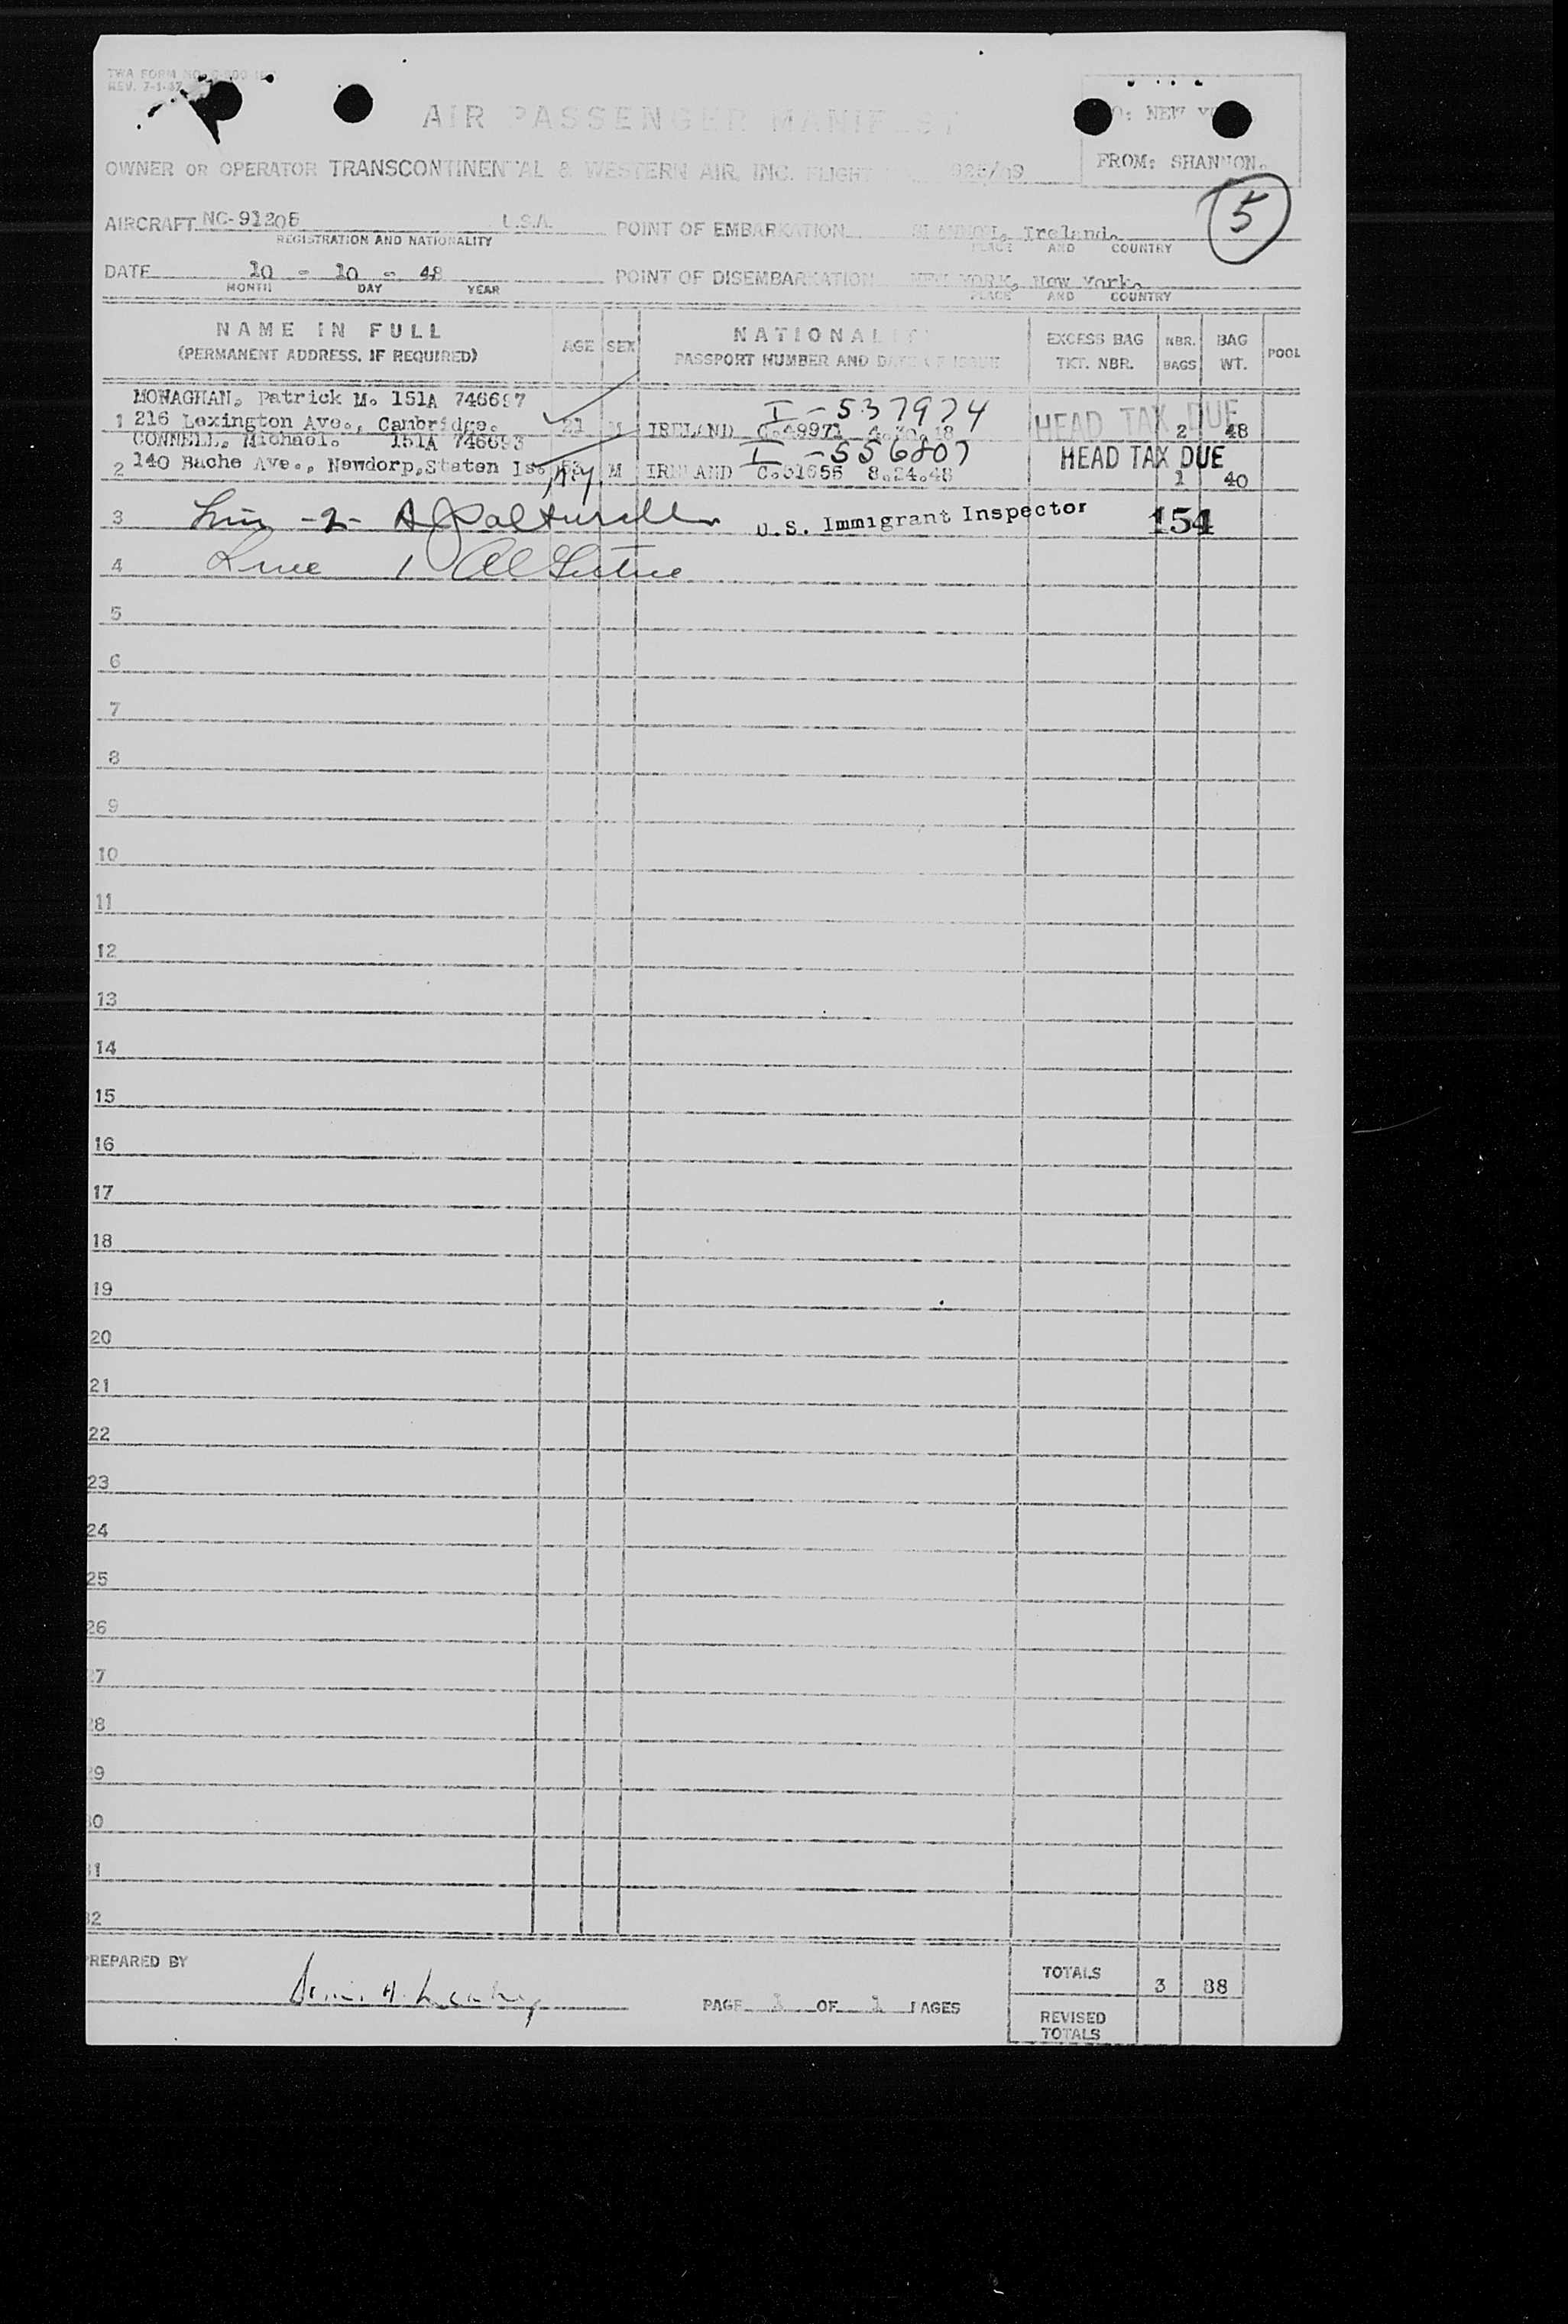 TWA FORM NO.
REV. 7-1-47
AIR PASSENGER MANIFEST
TO: NEW YORK
FROM: SHANNON.
OWNER OR OPERATOR TRANSCONTINENTAL & WESTERN AIR, INC. FLIGHT 925/09
5
AIRCRAFT NC-91206 U.S.A. POINT OF EMBARKATION SHANNON, Ireland.
REGISTRATION AND NATIONALITY PLACE AND COUNTRY
DATE 10 - 10 - 48 POINT OF DISEMBARKATION NEW YORK, New York.
MONTH DAY YEAR PLACE AND COUNTRY
NAME IN FULL
(PERMANENT ADDRESS, IF REQUIRED) AGE SEX NATIONALITY
PASSPORT NUMBER AND DATE OF ISSUE EXCESS BAG
TKT. NBR. NBR.
BAGS BAG
WT. POOL
MONAGHAN. Patrick M. 151A 746697 I-537974
1 216 Lexington Ave., Cambridge. 21 M IRELAND C.49971 4.30.48 HEAD TAX DUE 2 48
CONNELL. Michael. 151A 746693 I-556807
2 140 Bache Ave., Newdorp, Staten Is. NY M IRELAND C.51655 8.24.48 HEAD TAX DUE 1 40
3 -2- U.S. Immigrant Inspector 154
4 Line 1
5
6
7
8
9
10
11
12
13
14
15
16
17
18
19
20
21
22
23
24
25
26
27
28
29
30
31
32
PREPARED BY
PAGE 1 OF 1 PAGES
TOTALS 3 88
REVISED
TOTALS